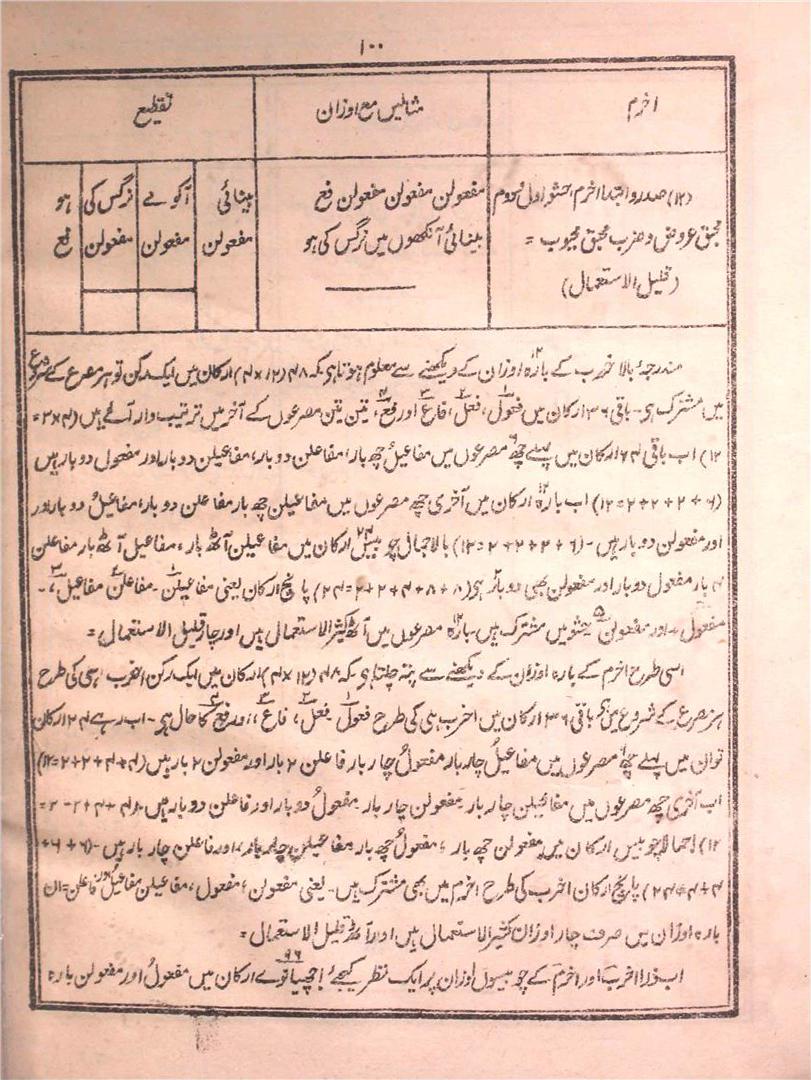 ۱۰۰
اخرم
مثالیں مع اوزان
تقطیع
(۱۲) صدر و ابتدا اخرم، حشو اول
محبق عروض و ضرب محبق مجبوب =
(قلیل الاستعمال)
مفعولن مفعولن مفعولن فع
بینائی آنکھوں میں نرگس کی ہو
بینائی
مفعولن
آکو مے
مفعولن
نرگس کی
مفعولن
ہو
فع
مندرجۂ بالا اخرب کے بارہ اوزان کے دیکھنے سے معلوم ہوتا ہی کہ ۴۸ (۱۲×۴) ارکان میں ایک رکن تو ہر مصرع کے شروع
میں مشترک ہی۔ باقی ۳۶ ارکان میں فعول، فعل، فاع اور فع، تین تین مصرعوں کے آخر میں ترتیب وار آئے ہیں (۴×۳ =
۱۲) اب باقی ارکان میں پہلے چھ مصرعوں میں مفاعیلُ چھ بار، مفاعلن دو بار، مفاعیلن دو بار اور مفعول دو بار ہیں
(۶+۲+۲+۲=۱۲) اب بارہ ارکان میں آخری چھ مصرعوں میں مفاعیلن چھ بار مفاعلن دو بار، مفاعیلُ دو بار اور
اور مفعولن دو بار ہیں۔ (۶+۲+۲+۲=۱۲) بالاجمال چوبیس ارکان میں مفاعیلن آٹھ بار، مفاعیل آٹھ بار مفاعلن
۴ بار مفعول دو بار اور مفعولن بھی دو بار ہی (۸+۸+۴+۲+۲=۲۴) پانچ ارکان یعنی مفاعیلن۔ مفاعلن مفاعیل،۔
مفعول۔ اور مفعولن حشو میں مشترک ہیں۔ بارہ مصرعوں میں آٹھ کثیر الاستعمال ہیں اور چار قلیل الاستعمال =
اسی طرح اخرم کے بارہ اوزان کے دیکھنے سے پتہ چلتا ہی کہ ۴۸ (۱۲×۴) ارکان میں ایک رکن اخرب ہی کی طرح
ہر مصرع کے شروع میں باقی ۳۶ ارکان میں اخرب ہی کی طرح فعول فعل، فاع،، اور فع کا حال ہی۔ اب رہے ۲۴ ارکان
تو ان میں پہلے چھ مصرعوں میں مفاعیلُ چار بار مفعولُ چار بار فاعلن ۲ بار اور مفعولن ۲ بار ہیں (۴+۴+۲+۲=۱۲)
اب آخری چھ مصرعوں میں مفاعیلن چار بار مفعولن چار بار مفعولُ دو بار اور فاعلن دو بار ہیں ۴+۴+۲-۲=
۱۲) اجمالا چوبیس ارکان میں مفعولن چھ بار، مفعولُ چھ بار مفاعیلن چار بار، اور فاعلن چار بار ہیں۔ (۶+۶+
۴+۴=۲۴) پانچ ارکان اخرب کی طرح اخرم میں بھی مشترک ہیں۔ یعنی مفعولن، مفعول، مفاعیلن مفاعیل اور فاعلن= ان
بارہ اوزان میں صرف چار اوزان کثیر الاستعمال ہیں اور آٹھ قلیل الاستعمال =
اب ذرا اخرب اور اخرم کے چوبیسوں اوزان پر ایک نظر کیجئے! چھیانوے ۹۶ ارکان میں مفعولُ اور مفعولن بارہ